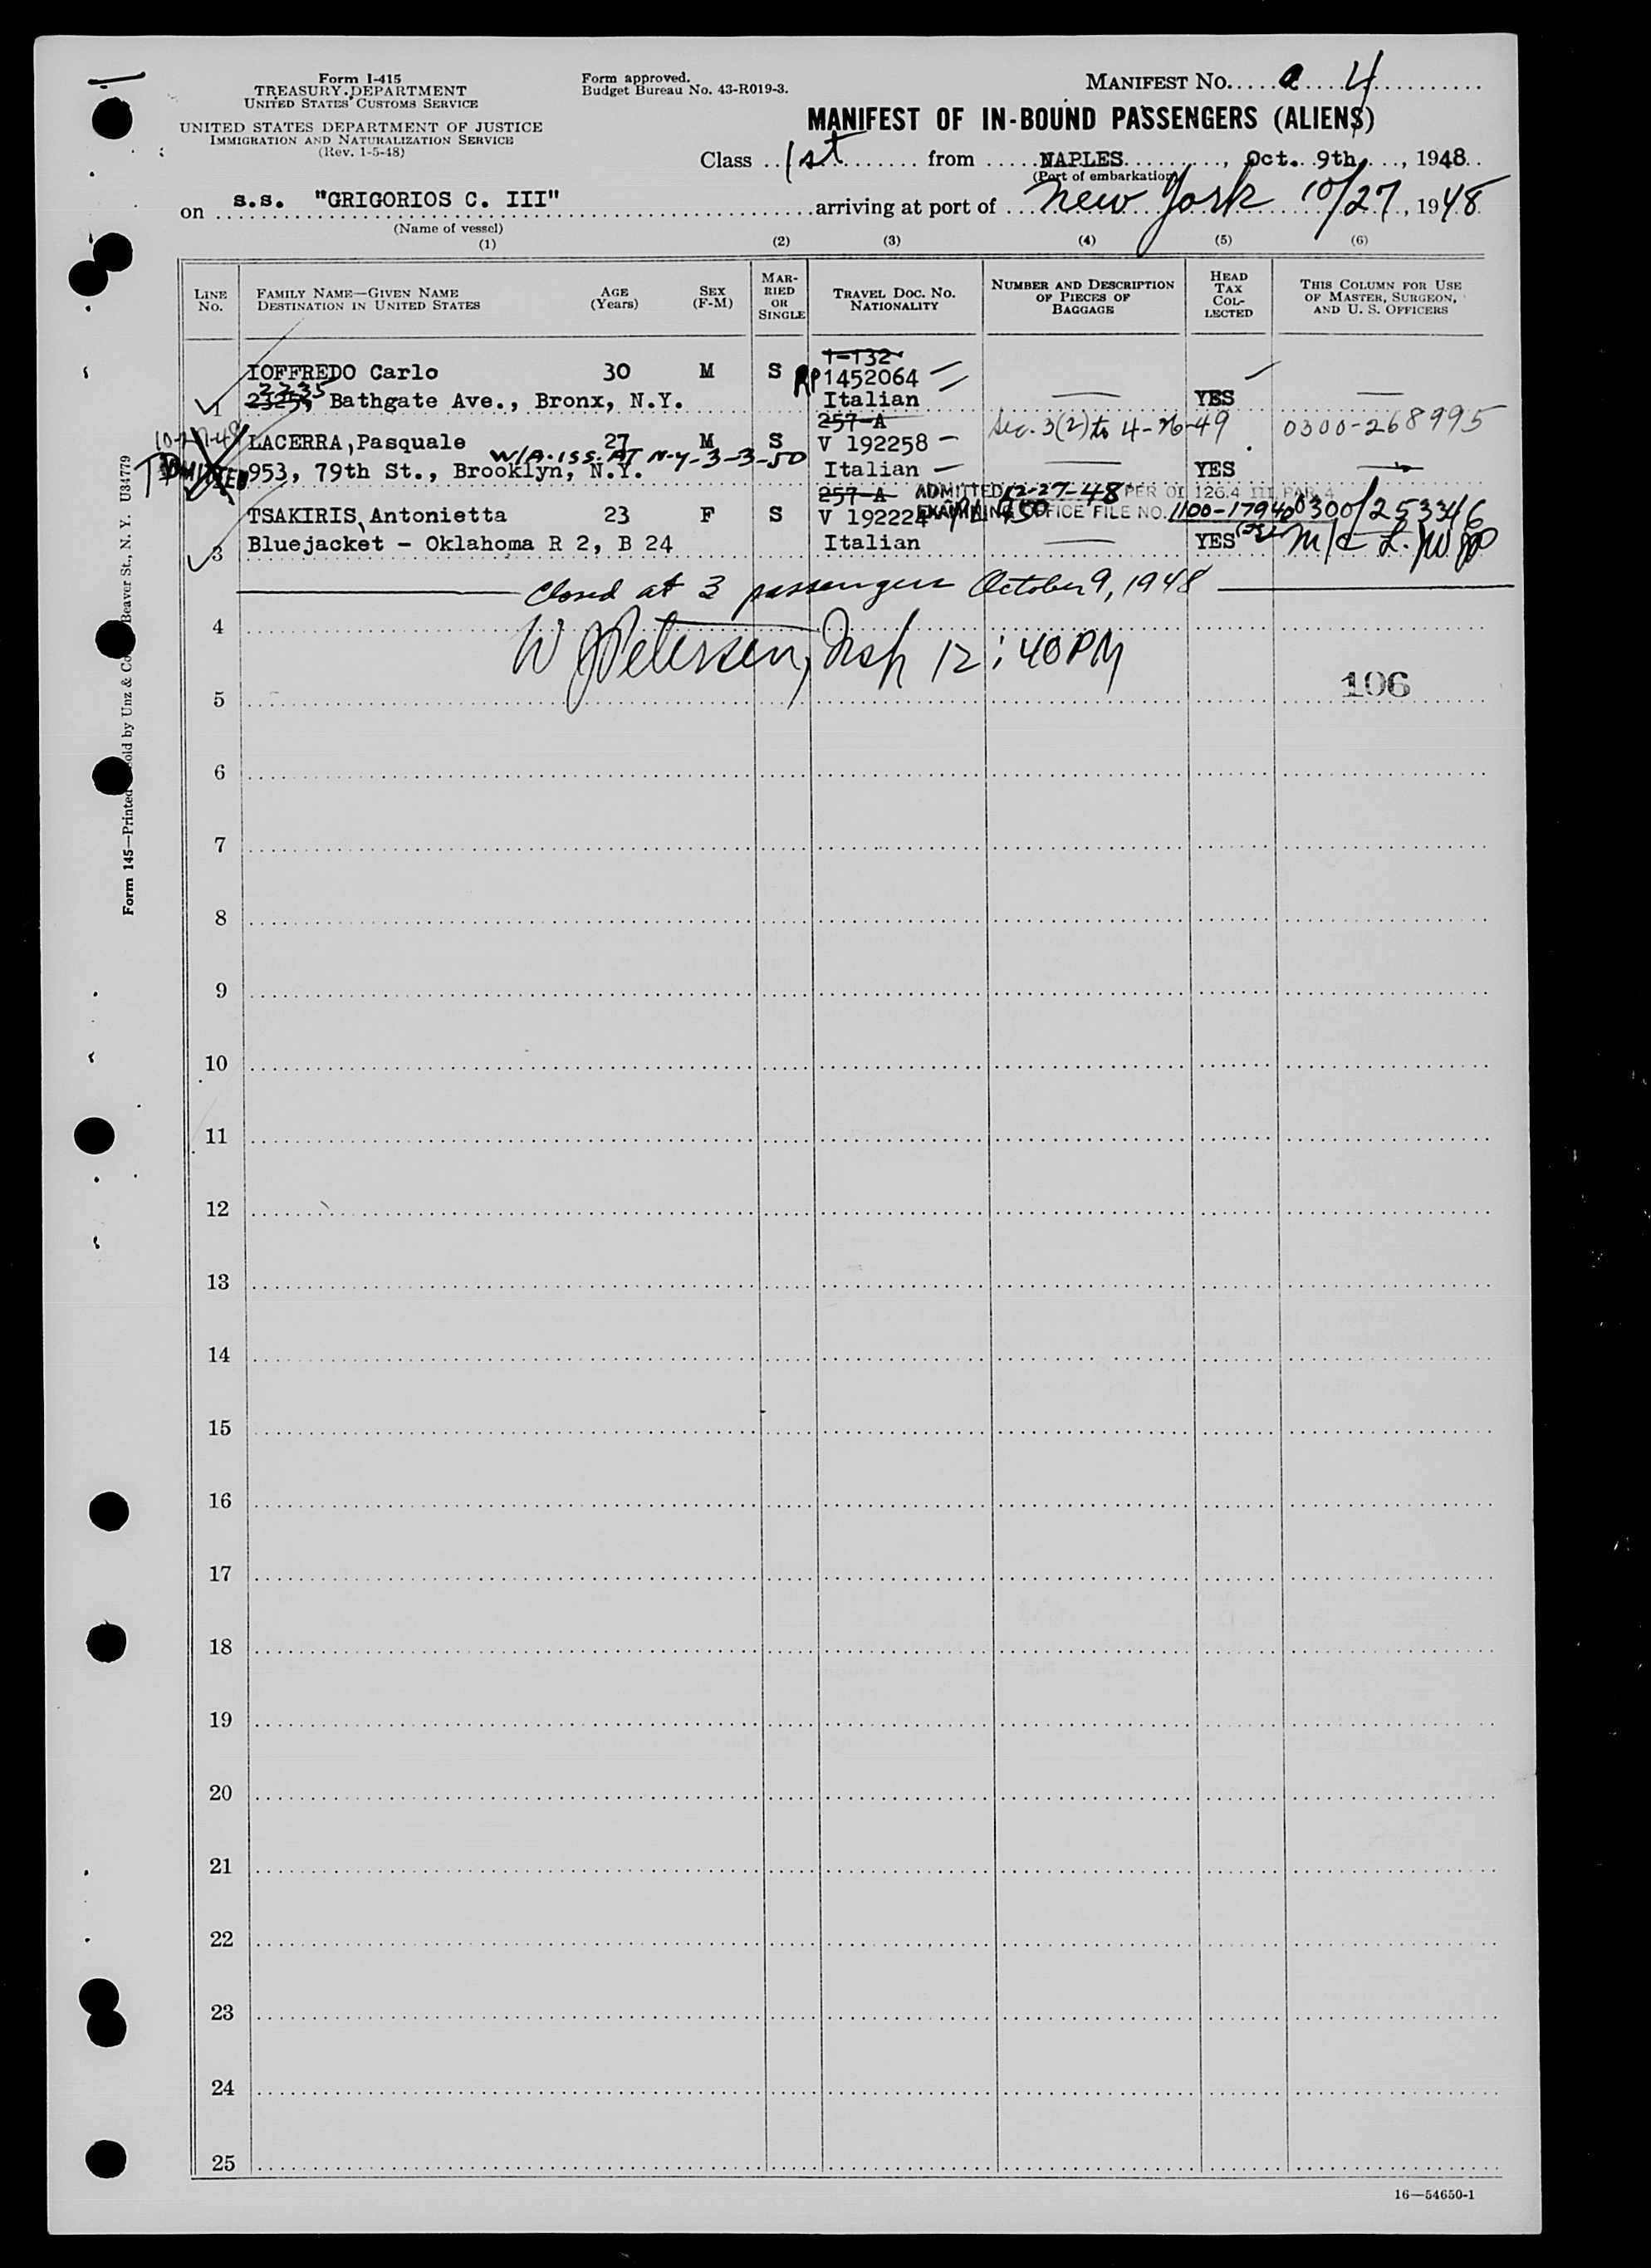 Form I-415
TREASURY DEPARTMENT
UNITED STATES CUSTOMS SERVICE
UNITED STATES DEPARTMENT OF JUSTICE
IMMIGRATION AND NATURALIZATION SERVICE
(Rev. 1-5-48)
Form approved.
Budget Bureau No. 43-R019-3.
MANIFEST NO. a 4
MANIFEST OF IN-BOUND PASSENGERS (ALIENS)
Class 1st from NAPLES, Oct. 9th, 1948
(Port of embarkation)
on s.s. "GRIGORIOS C. III" arriving at port of New York 10/27, 1948
(Name of vessel)
(1) (2) (3) (4) (5) (6)
LINE NO. FAMILY NAME—GIVEN NAME DESTINATION IN UNITED STATES AGE (Years) SEX (F-M) MARRIED OR SINGLE TRAVEL DOC. NO. NATIONALITY NUMBER AND DESCRIPTION OF PIECES OF BAGGAGE HEAD TAX COLLECTED THIS COLUMN FOR USE OF MASTER, SURGEON, AND U. S. OFFICERS
I-132
IOFFREDO Carlo 30 M S RP 1452064
2235
1 2325, Bathgate Ave., Bronx, N.Y. Italian YES
257-A Sec. 3(2) to 4-26-49 0300-268995
LACERRA, Pasquale 27 M S V 192258
W/A. ISS. AT N-Y-3-3-50
953, 79th St., Brooklyn, N.Y. Italian YES
257-A ADMITTED 12-27-48 PER OI 126.4 III PAR 4
TSAKIRIS, Antonietta 23 F S V 192224 EXAMINING OFFICE FILE NO. 1100-17940 0300/253346
3 Bluejacket - Oklahoma R 2, B 24 Italian YES
Closed at 3 passengers October 9, 1948
4
W J Petersen, Insp 12:40 PM
106
5
6
7
8
9
10
11
12
13
14
15
16
17
18
19
20
21
22
23
24
25
16—54650-1
Beaver St., N. Y. U34779
Form 145—Printed
old by Unz & Co